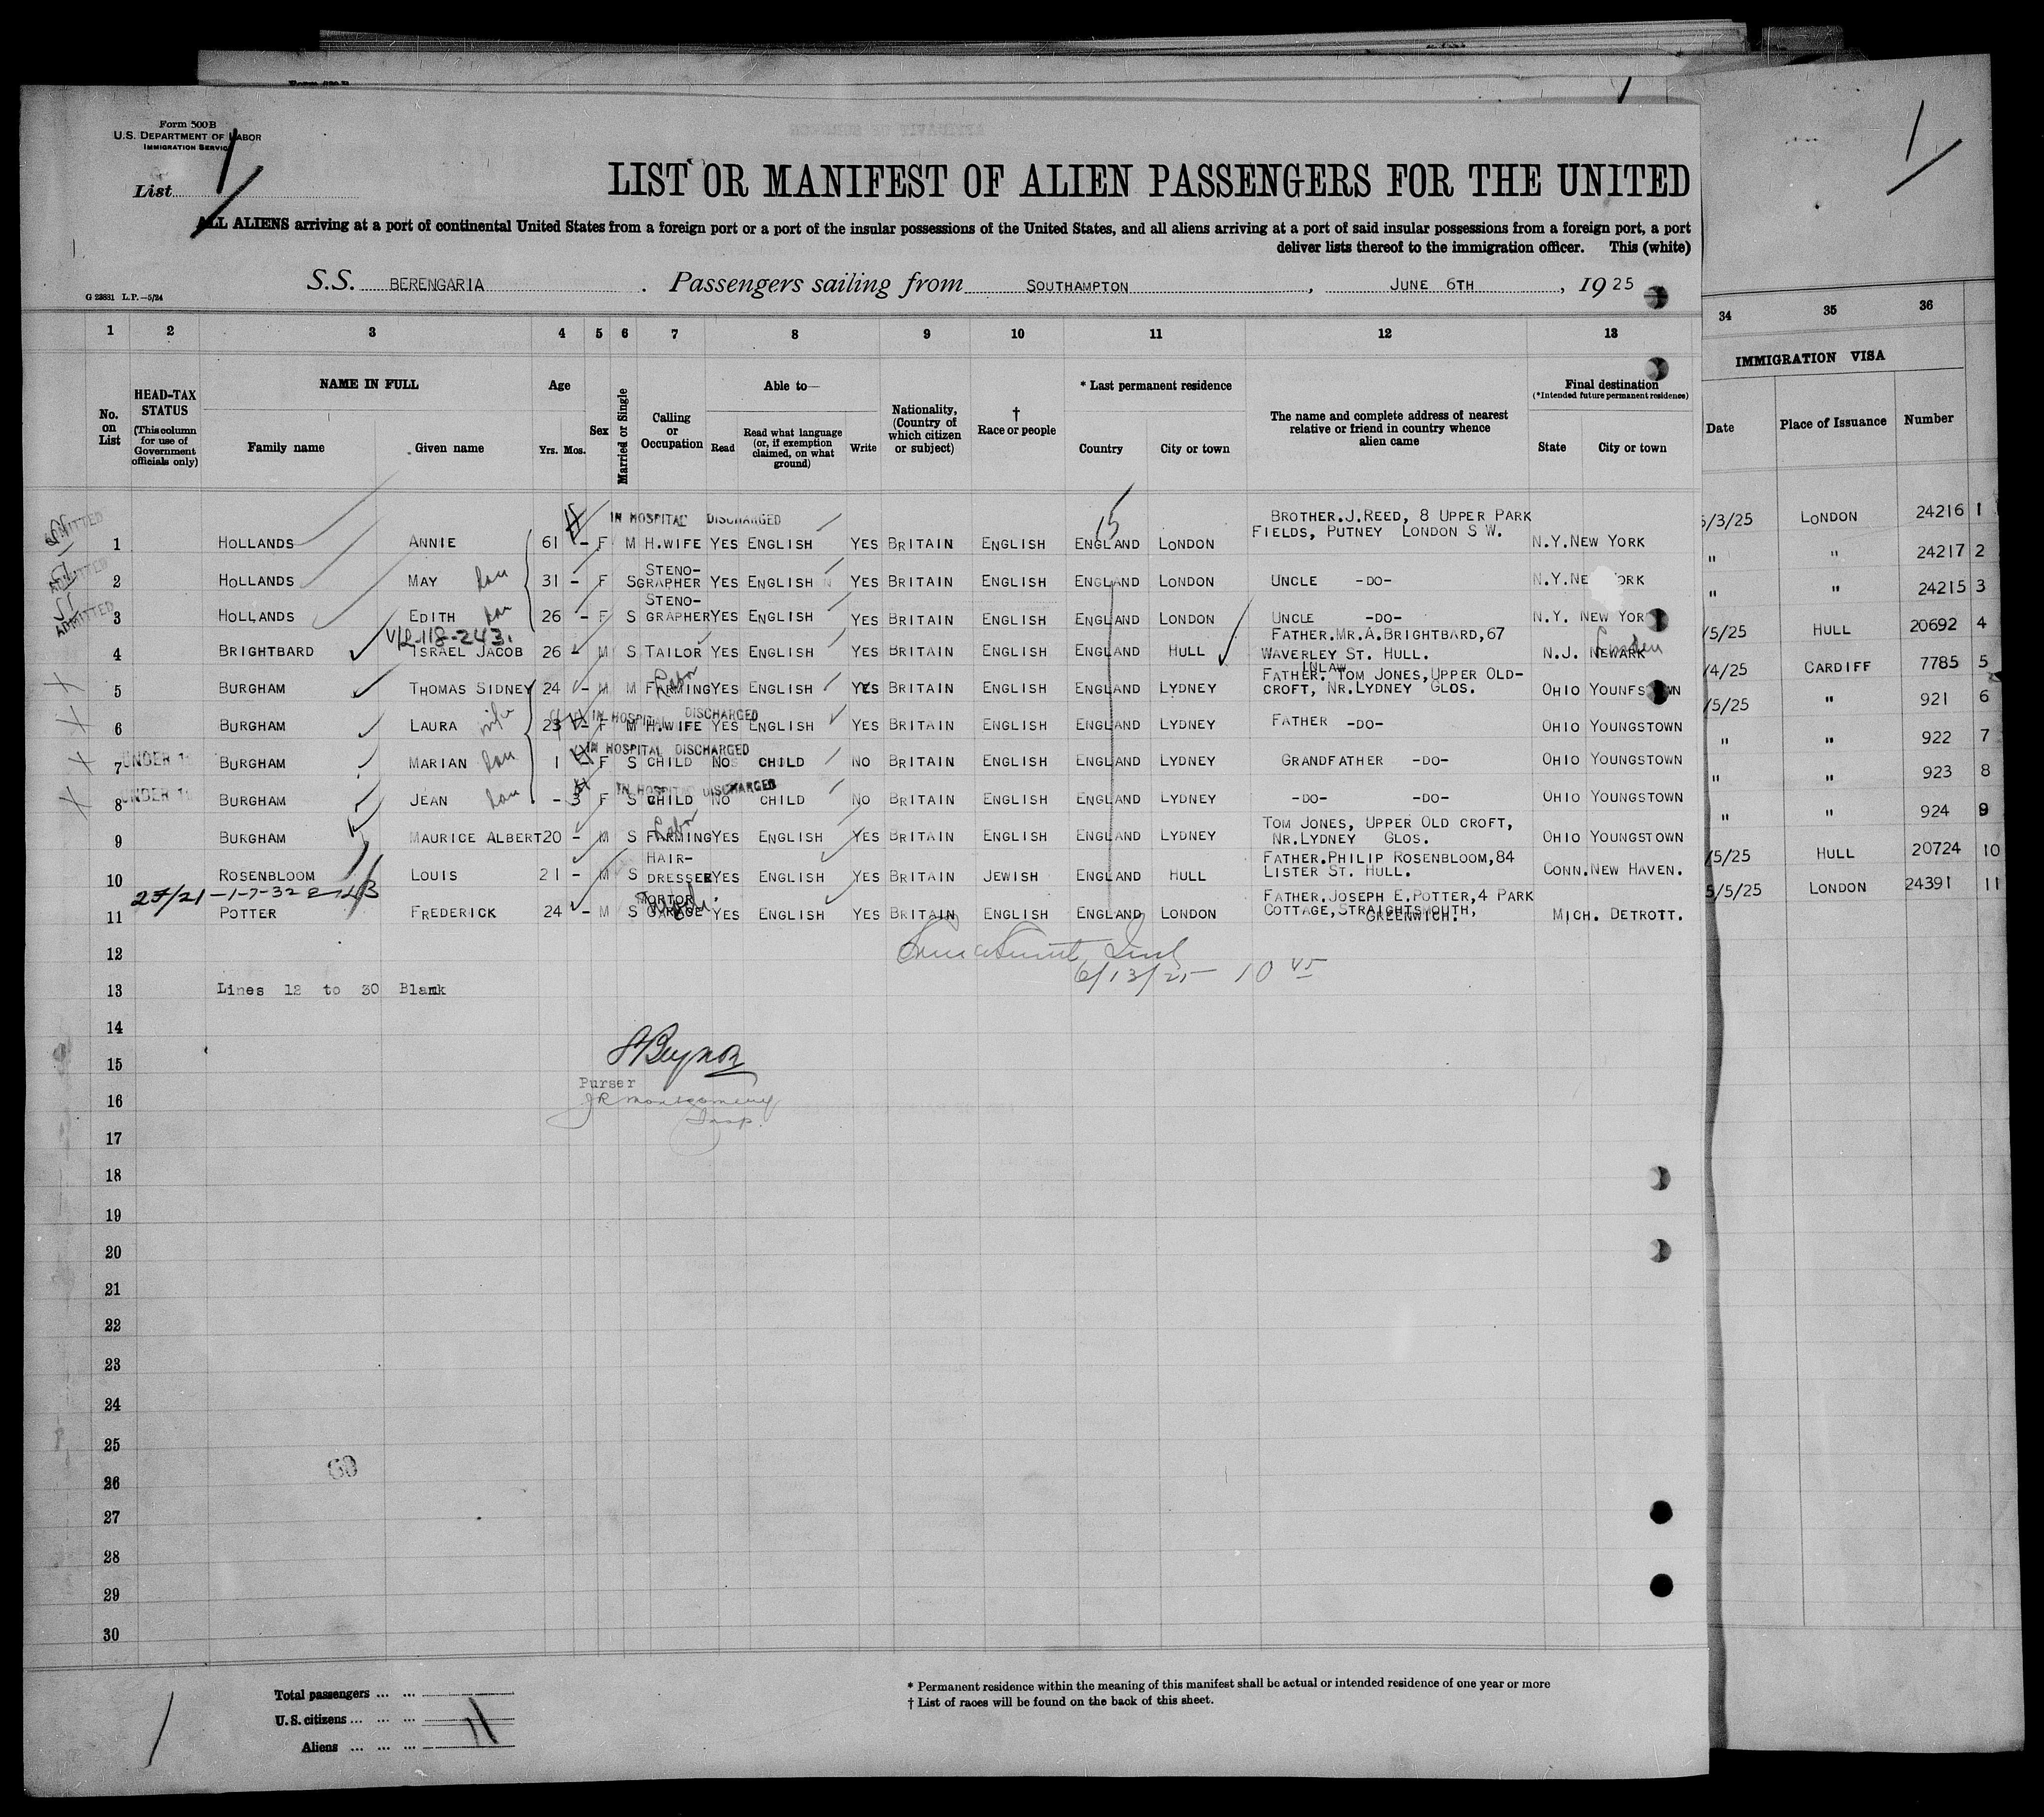 Form 500B
U.S. DEPARTMENT OF LABOR
IMMIGRATION SERVICE
List 1
LIST OR MANIFEST OF ALIEN PASSENGERS FOR THE UNITED
ALL ALIENS arriving at a port of continental United States from a foreign port or a port of the insular possessions of the United States, and all aliens arriving at a port of said insular possessions from a foreign port, a port
deliver lists thereof to the immigration officer. This (white)
S.S. BERENGARIA . Passengers sailing from SOUTHAMPTON , JUNE 6TH , 19 25
G 23831 L.P.—5/24
1 2 3 4 5 6 7 8 9 10 11 12 13 34 35 36
No. on List
HEAD-TAX STATUS (This column for use of Government officials only)
NAME IN FULL
Family name Given name
Age
Yrs. Mos.
Sex
Married or Single
Calling or Occupation
Able to—
Read
Read what language (or, if exemption claimed, on what ground)
Write
Nationality, (Country of which citizen or subject)
† Race or people
* Last permanent residence
Country City or town
The name and complete address of nearest relative or friend in country whence alien came
Final destination
(*Intended future permanent residence)
State City or town
IMMIGRATION VISA
Date Place of Issuance Number
ADMITTED IN HOSPITAL DISCHARGED 15
1 HOLLANDS ANNIE 61 - F M H.WIFE YES ENGLISH YES BRITAIN ENGLISH ENGLAND LONDON BROTHER.J.REED, 8 UPPER PARK FIELDS, PUTNEY LONDON S W. N.Y. NEW YORK 5/3/25 LONDON 24216 1
ADMITTED
2 HOLLANDS MAY dau 31 - F S STENO-GRAPHER YES ENGLISH YES BRITAIN ENGLISH ENGLAND LONDON UNCLE -DO- N.Y. NE ORK " " 24217 2
ADMITTED
3 HOLLANDS EDITH dau 26 - F S STENO-GRAPHER YES ENGLISH YES BRITAIN ENGLISH ENGLAND LONDON UNCLE -DO- N.Y. NEW YOR " " 24215 3
118-243.
4 BRIGHTBARD ISRAEL JACOB 26 - M S TAILOR YES ENGLISH YES BRITAIN ENGLISH ENGLAND HULL FATHER.MR.A.BRIGHTBARD,67 WAVERLEY ST. HULL. N.J. NEWARK Linden /5/25 HULL 20692 4
5 BURGHAM THOMAS SIDNEY 24 - M M FARMING Labor YES ENGLISH YES BRITAIN ENGLISH ENGLAND LYDNEY FATHER. INLAW TOM JONES,UPPER OLD-CROFT, NR.LYDNEY GLOS. OHIO YOUNFS WN /4/25 CARDIFF 7785 5
IN HOSPITAL DISCHARGED
6 BURGHAM LAURA wife 23 - F M H.WIFE YES ENGLISH YES BRITAIN ENGLISH ENGLAND LYDNEY FATHER -DO- OHIO YOUNGSTOWN /5/25 " 921 6
IN HOSPITAL DISCHARGED
7 UNDER 16 BURGHAM MARIAN dau 1 - F S CHILD NO CHILD NO BRITAIN ENGLISH ENGLAND LYDNEY GRANDFATHER -DO- OHIO YOUNGSTOWN " " 922 7
IN HOSPITAL DISCHARGED
8 UNDER 16 BURGHAM JEAN dau - 3 F S CHILD NO CHILD NO BRITAIN ENGLISH ENGLAND LYDNEY -DO- -DO- OHIO YOUNGSTOWN " " 923 8
9 BURGHAM MAURICE ALBERT 20 - M S FARMING Labor YES ENGLISH YES BRITAIN ENGLISH ENGLAND LYDNEY TOM JONES, UPPER OLD CROFT, NR.LYDNEY GLOS. OHIO YOUNGSTOWN " " 924 9
10 ROSENBLOOM LOUIS 21 - M S HAIR-DRESSER YES ENGLISH YES BRITAIN JEWISH ENGLAND HULL FATHER.PHILIP ROSENBLOOM,84 LISTER ST. HULL. CONN. NEW HAVEN. /5/25 HULL 20724 10
11 POTTER FREDERICK 24 - M S MORTOR GARAGE YES ENGLISH YES BRITAIN ENGLISH ENGLAND LONDON FATHER.JOSEPH E.POTTER,4 PARK COTTAGE,STRAIGHTSMOUTH, GREENWICH. MICH. DETROTT. 5/5/25 LONDON 24391 11
12
6/13/25 10 45
13 Lines 12 to 30 Blank
14
15
Purser
16 J R Montgomery
Insp.
17
18
19
20
21
22
23
24
25
26
27
28
29
30
Total passengers ... ...
U.S. citizens ... ... ...
Aliens ... ... ... 11
* Permanent residence within the meaning of this manifest shall be actual or intended residence of one year or more
† List of races will be found on the back of this sheet.